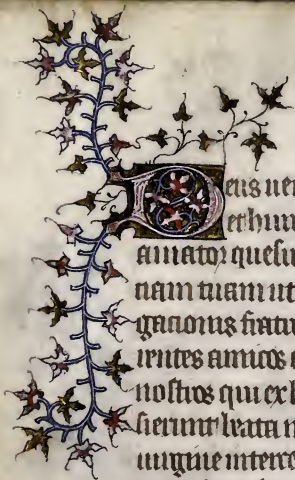 Deus uen
et hum
amator quesu
tiam tuam ut
gationis fratr
rentes amicos e
nostros qui ex h
sierunt beata m
uirgine interce